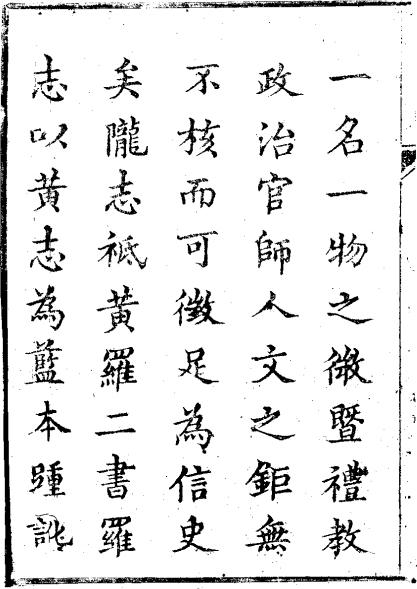 一名一物之微暨禮教
政治官師人文之鉅無
不核而可徵足為信史
矣隴志祗黃羅二書羅
志以黃志為藍本踵訛